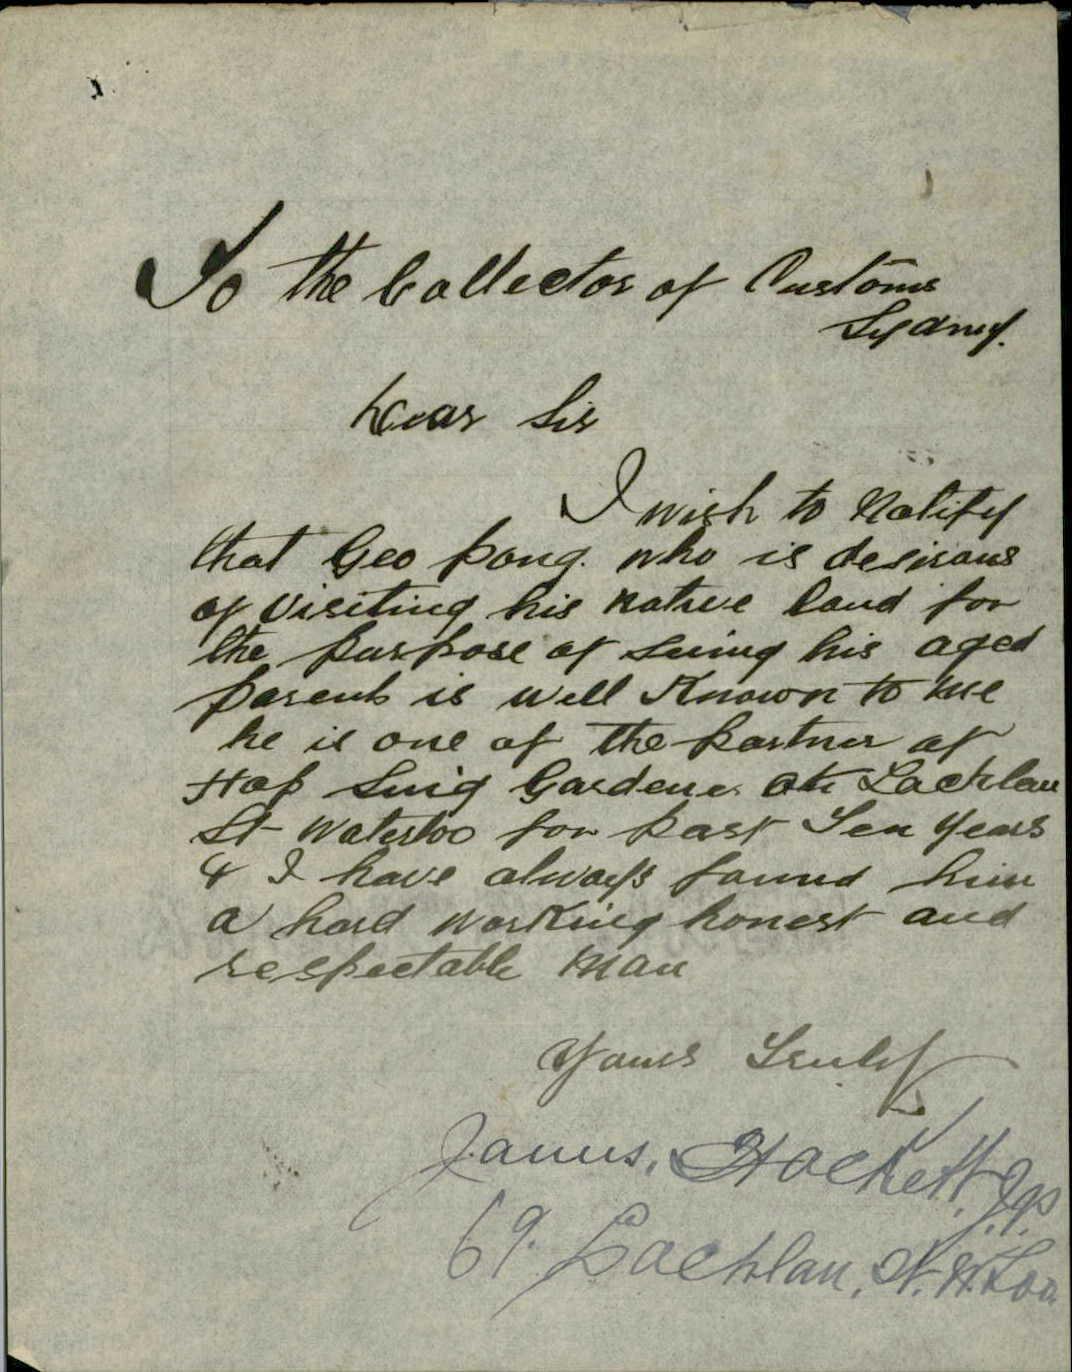 To the Collector of Customs
Sydney.
Dear Sir
I wish to Notify
that Geo Pong. who is desirous
of Visiting his native land for
the purpose of seeing his aged
parents is well Known to me
he is one of the partner of
Hop Sing Gardener at Lachlan
St Waterloo for past Ten Years
& I have always found him
a hard working honest and
respectable man
Yours Truly
James. Hackett. J.P.
J.P.
69. Lachlan. St. W.Loo